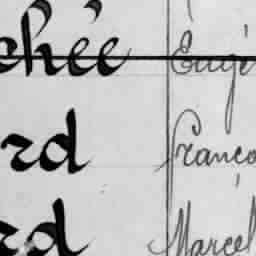 chée Eugè
rd franço
rd Marcel